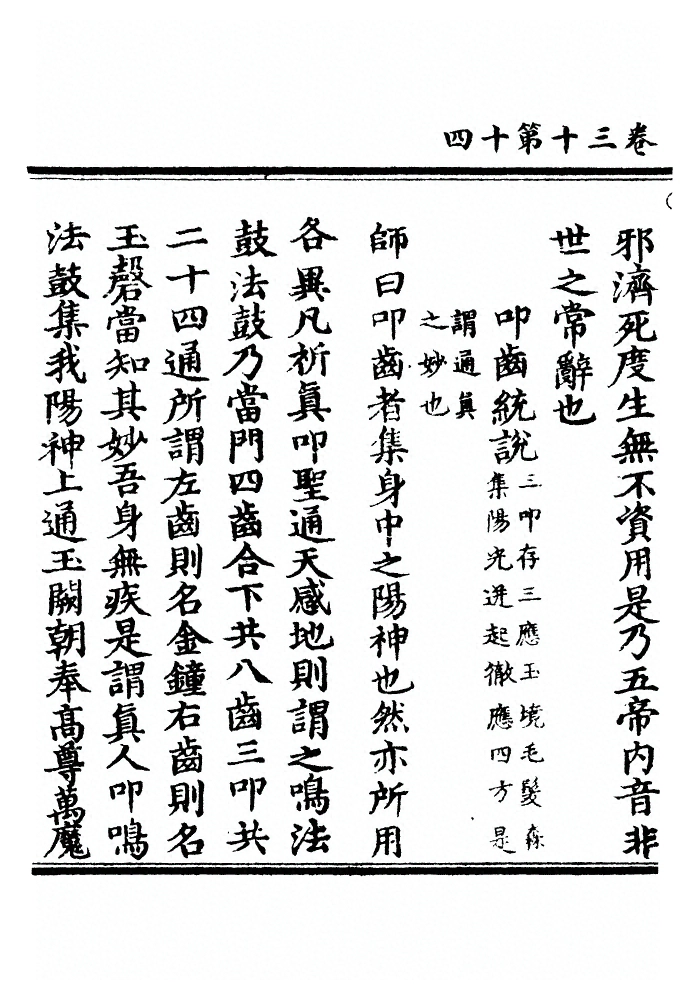 卷三十第十四
邪濟死度生無不資用是乃五帝内音非
世之常辭也
叩齒統說
三叩存三應玉境毛髮森
集陽光迸起徹應四方是
謂通眞
之妙也
師曰叩齒者集身中之陽神也然亦所用
各異凡祈眞叩聖通天感地則謂之鳴法
鼓法鼓乃當門四齒合下共八齒三叩共
二十四通所謂左齒則名金鐘右齒則名
玉磬當知其妙吾身無疾是謂眞人叩鳴
法鼓集我陽神上通玉闕朝奉高尊萬魔